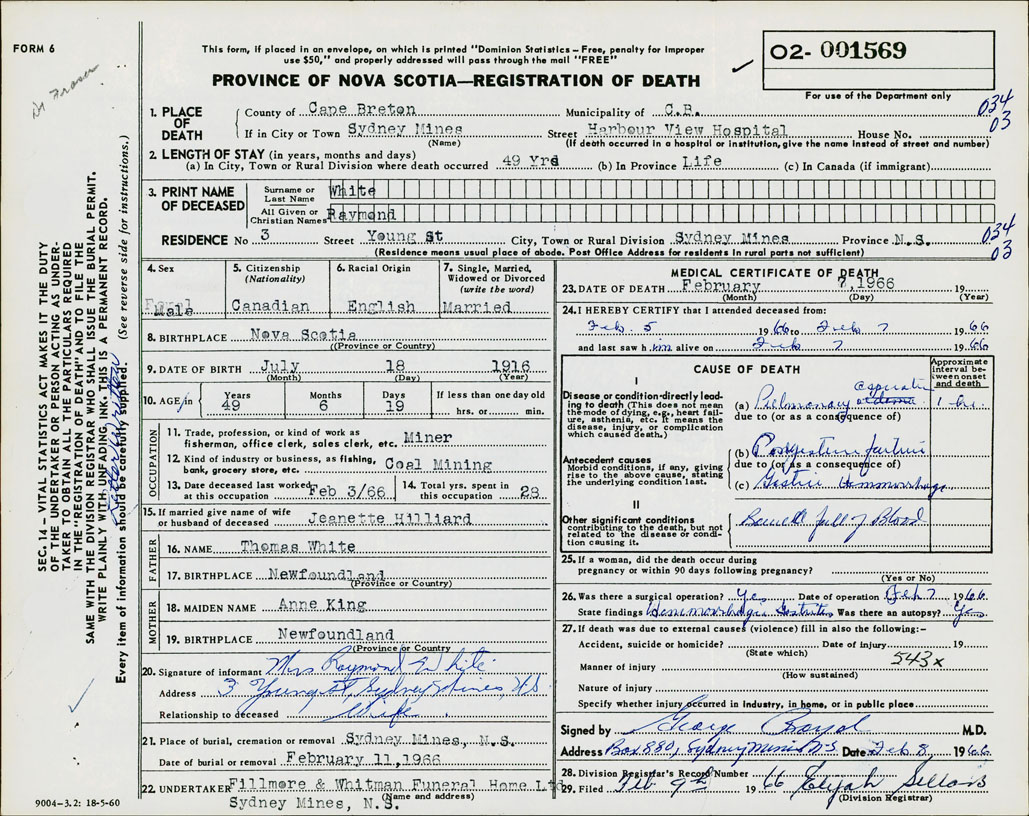 FORM 6
Dr Fraser
This form, if placed in an envelope, on which is printed "Dominion Statistics – Free, penalty for improper
use $50," and properly addressed will pass through the mail "FREE"
PROVINCE OF NOVA SCOTIA—REGISTRATION OF DEATH
O2- 001569
For use of the Department only
1. PLACE OF DEATH
County of Cape Breton Municipality of C.B. 034
If in City or Town Sydney Mines Street Harbour View Hospital House No. 03
(Name) (If death occurred in a hospital or institution, give the name instead of street and number)
2. LENGTH OF STAY (in years, months and days)
(a) In City, Town or Rural Division where death occurred 49 Yrs (b) In Province Life (c) In Canada (if immigrant)
3. PRINT NAME OF DECEASED
Surname or Last Name White
All Given or Christian Names Raymond
RESIDENCE No 3 Street Young St City, Town or Rural Division Sydney Mines Province N.S. 034 03
(Residence means usual place of abode. Post Office Address for residents in rural parts not sufficient)
4. Sex Male
5. Citizenship (Nationality) Canadian
6. Racial Origin English
7. Single, Married, Widowed or Divorced (write the word) Married
8. BIRTHPLACE Nova Scotia
(Province or Country)
9. DATE OF BIRTH July 18 1916
(Month) (Day) (Year)
10. AGE in Years 49 Months 6 Days 19 If less than one day old hrs. or min.
OCCUPATION
11. Trade, profession, or kind of work as fisherman, office clerk, sales clerk, etc. Miner
12. Kind of industry or business, as fishing, bank, grocery store, etc. Coal Mining
13. Date deceased last worked at this occupation Feb 3/66
14. Total yrs. spent in this occupation 28
15. If married give name of wife or husband of deceased Jeanette Hilliard
FATHER
16. NAME Thomas White
17. BIRTHPLACE Newfoundland
(Province or Country)
MOTHER
18. MAIDEN NAME Anne King
19. BIRTHPLACE Newfoundland
(Province or Country)
20. Signature of informant Mrs Raymond White
Address 3 Young St, Sydney Mines NS
Relationship to deceased Wife
21. Place of burial, cremation or removal Sydney Mines, N.S.
Date of burial or removal February 11, 1966
22. UNDERTAKER Fillmore & Whitman Funeral Home Ltd
(Name and address)
Sydney Mines, N.S.
MEDICAL CERTIFICATE OF DEATH
23. DATE OF DEATH February 7,1966 19
(Month) (Day) (Year)
24. I HEREBY CERTIFY that I attended deceased from:
Feb. 5 1966 to Feb 7 1966
and last saw him alive on Feb 7 1966
CAUSE OF DEATH
Approximate interval between onset and death
I
Disease or condition directly leading to death (This does not mean the mode of dying, e.g., heart failure, asthenia, etc. It means the disease, injury, or complication which caused death.)
(a) Pulmonary edema aspiration 1 hr.
due to (or as a consequence of)
Antecedent causes
Morbid conditions, if any, giving rise to the above cause, stating the underlying condition last.
(b)
due to (or as a consequence of)
(c) Gastric Hemmorrhage
II
Other significant conditions contributing to the death, but not related to the disease or condition causing it.
full of Blood
25. If a woman, did the death occur during
pregnancy or within 90 days following pregnancy?
(Yes or No)
26. Was there a surgical operation? Yes Date of operation Feb 7 1966
State findings Hemmorrhagic Gastritis Was there an autopsy? Yes
27. If death was due to external causes (violence) fill in also the following:–
Accident, suicide or homicide? Date of injury 19
(State which)
543x
Manner of injury
(How sustained)
Nature of injury
Specify whether injury occurred in industry, in home, or in public place
Signed by George M.D.
Address Box 880, Sydney Mines NS Date Feb 8 1966
28. Division Registrar's Record Number
29. Filed Feb 9th 1966 Elijah
(Division Registrar)
SEC. 14 – VITAL STATISTICS ACT MAKES IT THE DUTY
OF THE UNDERTAKER OR PERSON ACTING AS UNDER-
TAKER TO OBTAIN ALL THE PARTICULARS REQUIRED
IN THE "REGISTRATION OF DEATH" AND TO FILE THE
SAME WITH THE DIVISION REGISTRAR WHO SHALL ISSUE THE BURIAL PERMIT.
WRITE PLAINLY WITH UNFADING INK. THIS IS A PERMANENT RECORD.
Every item of information should be carefully supplied. (See reverse side for instructions.)
9004–3.2: 18-5-60